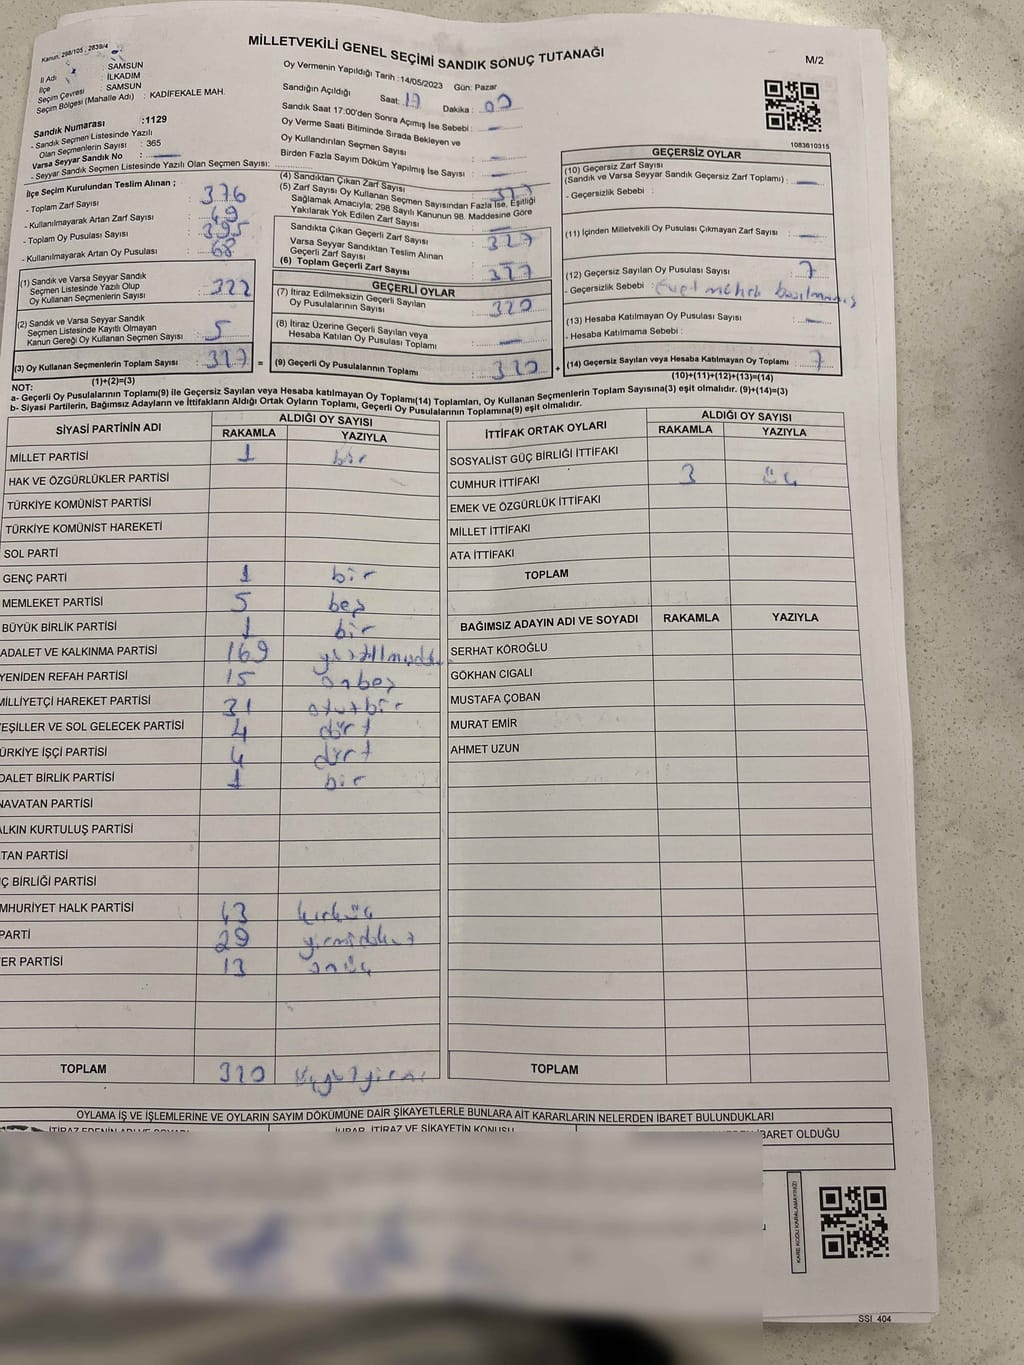 Kanun, 298/105 , 2839/4
MİLLETVEKİLİ GENEL SEÇİMİ SANDIK SONUÇ TUTANAĞI
M/2
İl Adı : SAMSUN
İlçe : İLKADIM
Seçim Çevresi : SAMSUN
Seçim Bölgesi (Mahalle Adı) : KADİFEKALE MAH.
Oy Vermenin Yapıldığı Tarih :14/05/2023 Gün: Pazar
Sandığın Açıldığı Saat: 17 Dakika : 00
Sandık Saat 17:00'den Sonra Açımış İse Sebebi : —
Oy Verme Saati Bitiminde Sırada Bekleyen ve
Oy Kullandırılan Seçmen Sayısı : —
Birden Fazla Sayım Döküm Yapılmış İse Sayısı : —
1083610315
Sandık Numarası :1129
- Sandık Seçmen Listesinde Yazılı
Olan Seçmenlerin Sayısı : 365
Varsa Seyyar Sandık No : —
- Seyyar Sandık Seçmen Listesinde Yazılı Olan Seçmen Sayısı:
İlçe Seçim Kurulundan Teslim Alınan ;
- Toplam Zarf Sayısı : 376
- Kullanılmayarak Artan Zarf Sayısı : 49
- Toplam Oy Pusulası Sayısı : 395
- Kullanılmayarak Artan Oy Pusulası : 68
(1) Sandık ve Varsa Seyyar Sandık
Seçmen Listesinde Yazılı Olup
Oy Kullanan Seçmenlerin Sayısı : 322
(2) Sandık ve Varsa Seyyar Sandık
Seçmen Listesinde Kayıtlı Olmayan
Kanun Gereği Oy Kullanan Seçmen Sayısı : 5
(3) Oy Kullanan Seçmenlerin Toplam Sayısı : 327 =
(1)+(2)=(3)
(4) Sandıktan Çıkan Zarf Sayısı : 327
(5) Zarf Sayısı Oy Kullanan Seçmen Sayısından Fazla İse, Eşitliği
Sağlamak Amacıyla; 298 Sayılı Kanunun 98. Maddesine Göre
Yakılarak Yok Edilen Zarf Sayısı : —
Sandıkta Çıkan Geçerli Zarf Sayısı : 327
Varsa Seyyar Sandıktan Teslim Alınan
Geçerli Zarf Sayısı :
(6) Toplam Geçerli Zarf Sayısı : 327
GEÇERLİ OYLAR
(7) İtiraz Edilmeksizin Geçerli Sayılan
Oy Pusulalarının Sayısı : 320
(8) İtiraz Üzerine Geçerli Sayılan veya
Hesaba Katılan Oy Pusulası Toplamı : —
(9) Geçerli Oy Pusulalarının Toplamı : 320 +
GEÇERSİZ OYLAR
(10) Geçersiz Zarf Sayısı
(Sandık ve Varsa Seyyar Sandık Geçersiz Zarf Toplamı) : —
- Geçersizlik Sebebi :
(11) İçinden Milletvekili Oy Pusulası Çıkmayan Zarf Sayısı : —
(12) Geçersiz Sayılan Oy Pusulası Sayısı : 7
- Geçersizlik Sebebi : Evet mührü basılmamış
(13) Hesaba Katılmayan Oy Pusulası Sayısı : —
- Hesaba Katılmama Sebebi :
(14) Geçersiz Sayılan veya Hesaba Katılmayan Oy Toplamı : 7
(10)+(11)+(12)+(13)=(14)
NOT:
a- Geçerli Oy Pusulalarının Toplamı(9) ile Geçersiz Sayılan veya Hesaba katılmayan Oy Toplamı(14) Toplamları, Oy Kullanan Seçmenlerin Toplam Sayısına(3) eşit olmalıdır. (9)+(14)=(3)
b- Siyasi Partilerin, Bağımsız Adayların ve İttifakların Aldığı Ortak Oyların Toplamı, Geçerli Oy Pusulalarının Toplamına(9) eşit olmalıdır.
SİYASİ PARTİNİN ADI ALDIĞI OY SAYISI
RAKAMLA YAZIYLA
MİLLET PARTİSİ 1 bir
HAK VE ÖZGÜRLÜKLER PARTİSİ
TÜRKİYE KOMÜNİST PARTİSİ
TÜRKİYE KOMÜNİST HAREKETİ
SOL PARTİ
GENÇ PARTİ 1 bir
MEMLEKET PARTİSİ 5 beş
BÜYÜK BİRLİK PARTİSİ 1 bir
ADALET VE KALKINMA PARTİSİ 169
YENİDEN REFAH PARTİSİ 15 onbeş
MİLLİYETÇİ HAREKET PARTİSİ 31 otuzbir
EŞİLLER VE SOL GELECEK PARTİSİ 4 dört
ÜRKİYE İŞÇİ PARTİSİ 4 dört
DALET BİRLİK PARTİSİ 1 bir
NAVATAN PARTİSİ
ALKIN KURTULUŞ PARTİSİ
TAN PARTİSİ
Ç BİRLİĞİ PARTİSİ
MHURİYET HALK PARTİSİ 43 kırküç
PARTİ 29 yirmidokuz
ER PARTİSİ 13 onüç
TOPLAM 320 üçyüzyirmi
İTTİFAK ORTAK OYLARI ALDIĞI OY SAYISI
RAKAMLA YAZIYLA
SOSYALİST GÜÇ BİRLİĞİ İTTİFAKI
CUMHUR İTTİFAKI 3 üç
EMEK VE ÖZGÜRLÜK İTTİFAKI
MİLLET İTTİFAKI
ATA İTTİFAKI
TOPLAM
BAĞIMSIZ ADAYIN ADI VE SOYADI RAKAMLA YAZIYLA
SERHAT KÖROĞLU
GÖKHAN CIGALI
MUSTAFA ÇOBAN
MURAT EMİR
AHMET UZUN
TOPLAM
OYLAMA İŞ VE İŞLEMLERİNE VE OYLARIN SAYIM DÖKÜMÜNE DAİR ŞİKAYETLERLE BUNLARA AİT KARARLARIN NELERDEN İBARET BULUNDUKLARI
İTİRAZ EDENİN ADI VE SOYADI İHBAR, İTİRAZ VE ŞİKAYETİN KONUSU İBARET OLDUĞU
KARE KODU KARALAMAYINIZ!
SSİ 404